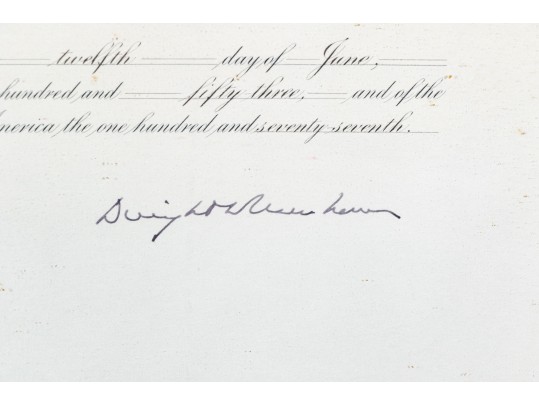 twelfth day of June,
hundred and fifty-three, and of the
merica the one hundred and seventy-seventh.
Dwight D Eisenhower